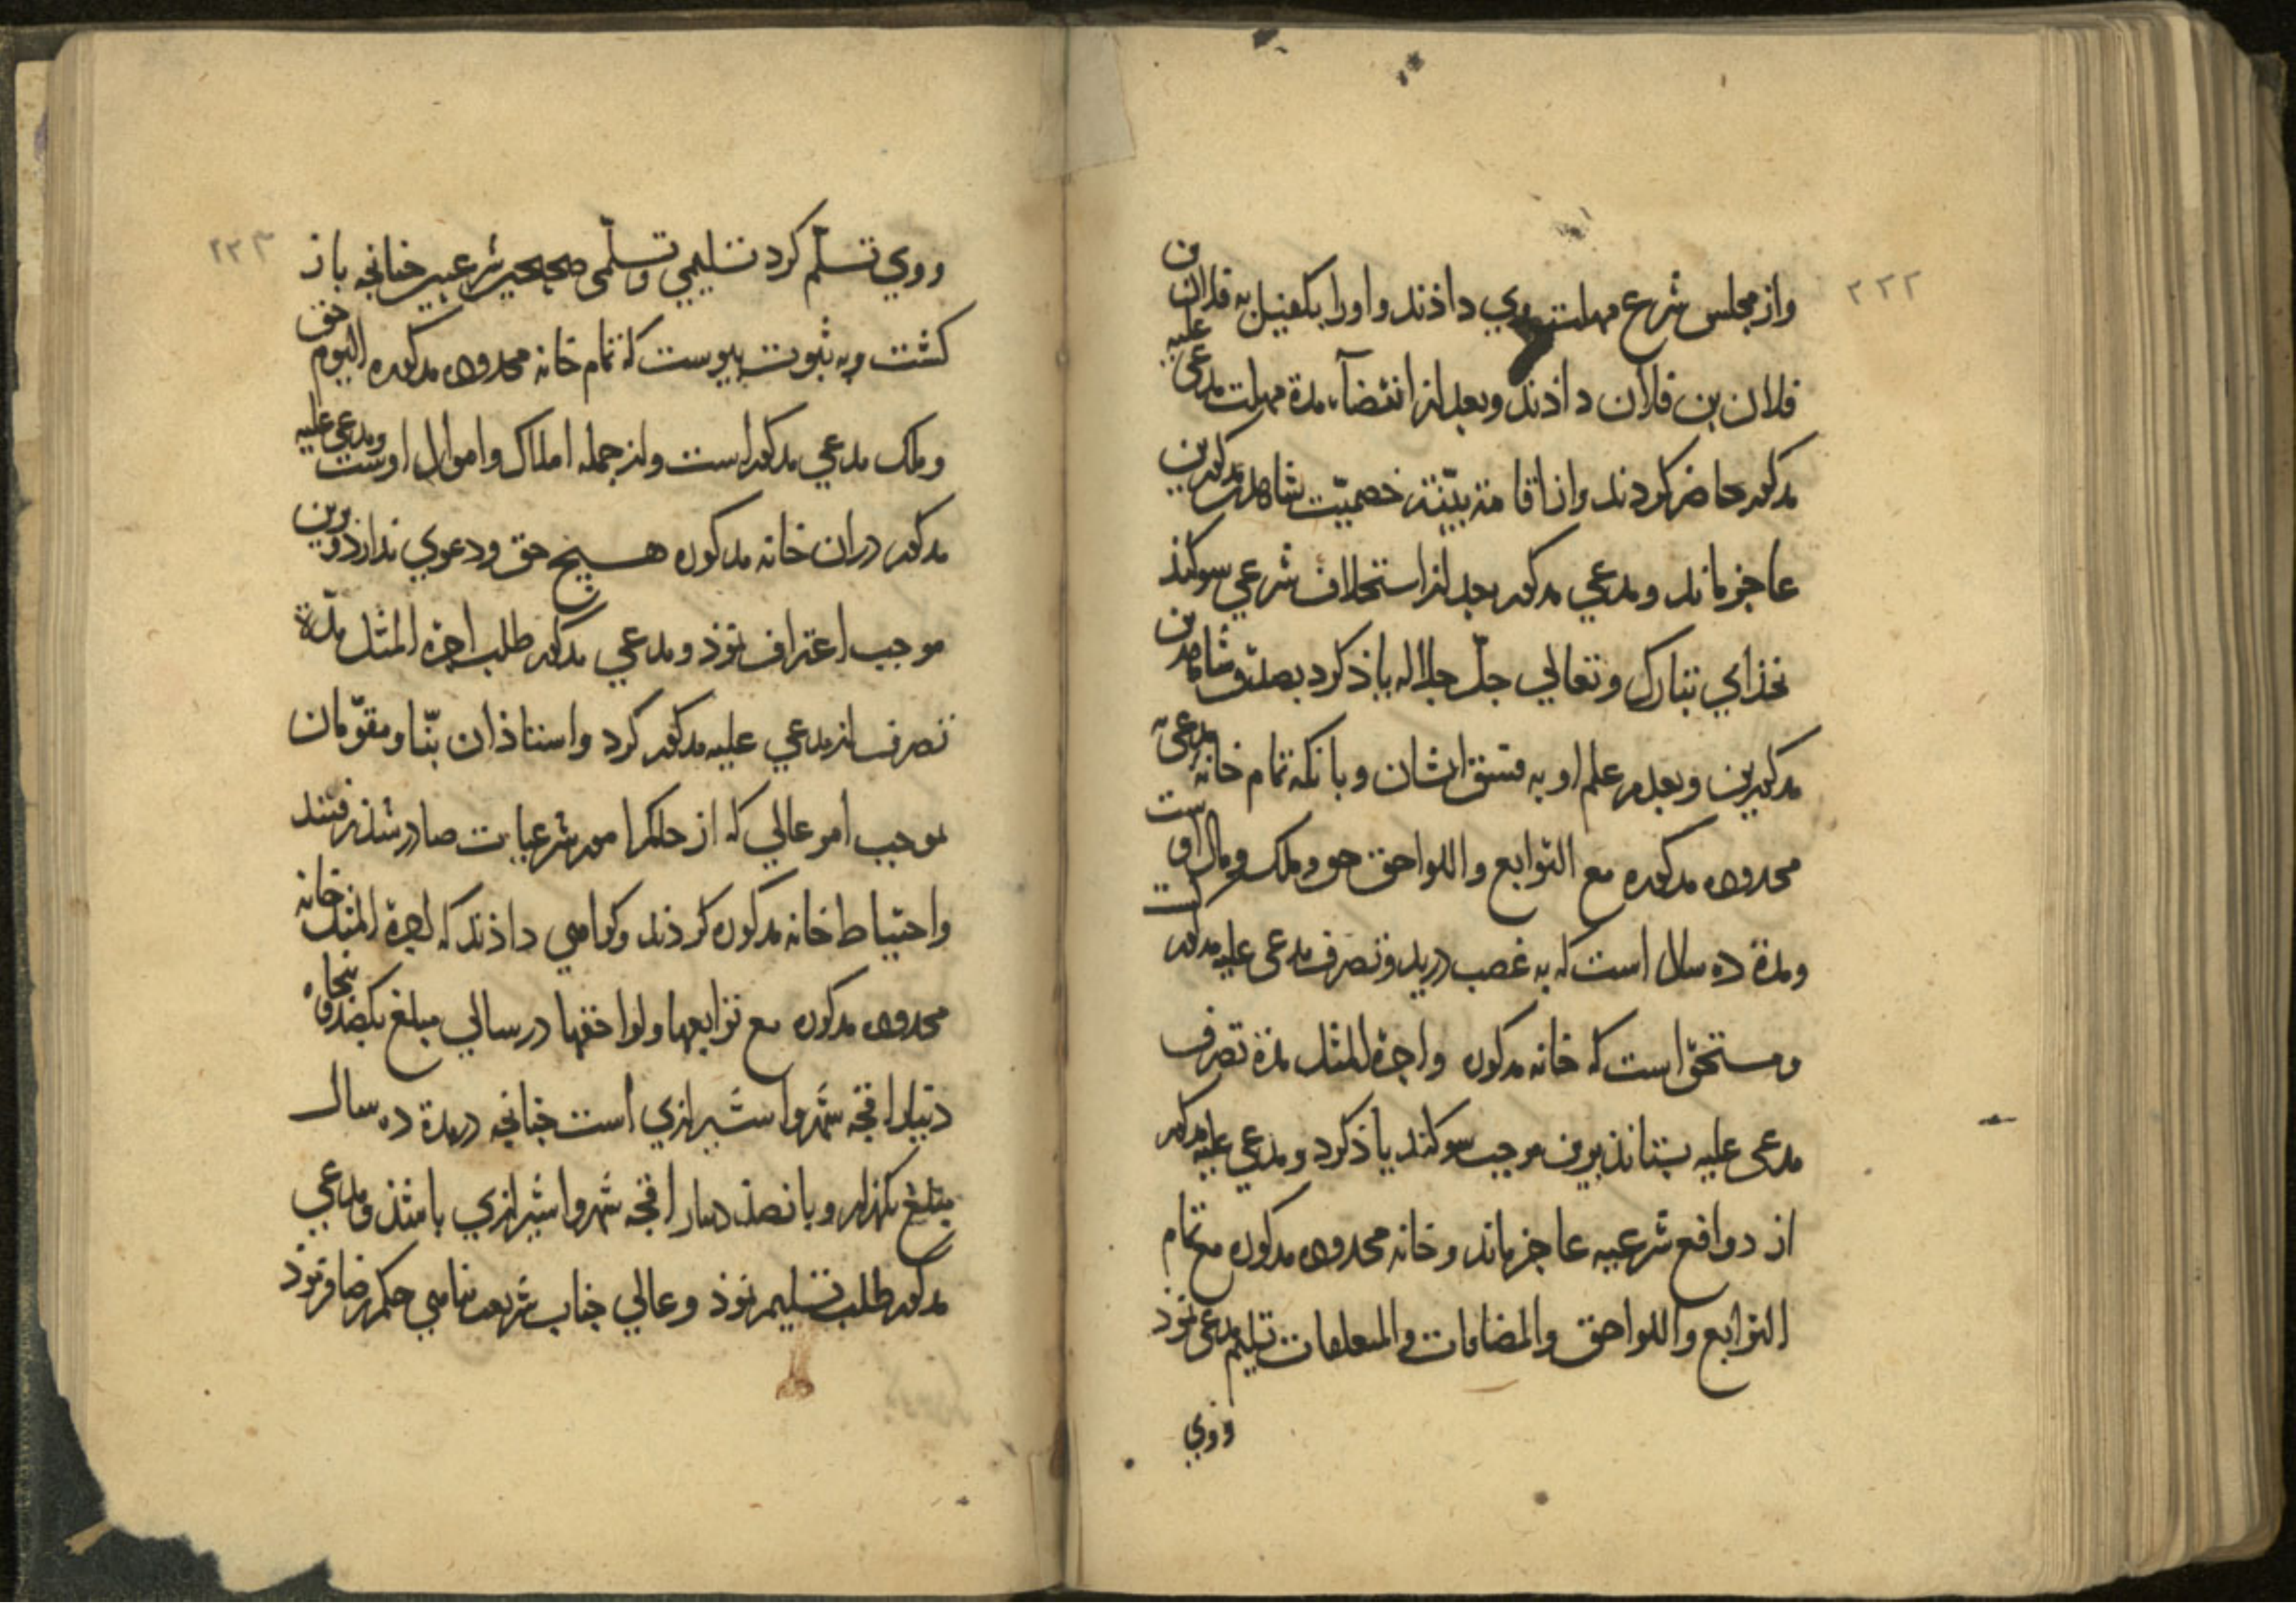 ۲۲۲
واز مجلس شرع مهلت بوي داذند واورا بكفيل به فلان بن
فلان بن فلان داذند وبعد از انقضآء مدة مهلت مدعى عليه
مذكور حاضر كردند واز اقامة بيّنة خصميّت شاهدين مذكورين
عاجز ماند ومدعي مذكور بعد از استحلاف شرعي سوكند
بخذاي تبارك وتعالي جلّ جلاله ياذ كرد بصدق شاهدين
مذكورين وبعدم علم او به فسق ايشان وبانكه تمام خانه مدعى به
محدوده مذكوره مع التوابع واللواحق حق وملك ومال اوست
ومدة ده سال است كه به غصب در يد وتصرف مدعى عليه مذكور است
ومستحق است كه خانه مذكوره واجرة المثل مدة تصرف
مدعى عليه بستاند برين موجب سوكند ياذ كرد ومدعي عليه مذكور
از دوافع شرعيه عاجز ماند وخانه محدوده مذكوره مع تمام
التوابع واللواحق والمضافات والمتعلقات تسليم مدعى نموذ
ووي
۲۲۳
ووي تسلّم كرد تسليمي وتسلّمى صحيحين شرعيين چنانچه باز
كشت وبه ثبوت پيوست كه تمام خانه محدوده مذكوره اليوم حق
وملك مدعي مذكور است واز جمله املاك واموال اوست ومدعى عليه
مذكور دران خانه مذكوره هيچ حق ودعوي ندارد وبرين
موجب اعتراف نموذ ومدعي مذكور طلب اجرة المثل مدّة
تصرف از مدعي عليه مذكور كرد واستاذان بنّا ومقوّمان
بموجب امر عالي كه از حكم امور شرعيات صادر شذ رفتند
واحتياط خانه مذكوره كردند وكواهي داذند كه اجرة المثل خانه
محدوده مذكوره مع توابعها ولواحقها در سالي مبلغ يكصد وپنجاه
دينار اقچه شهروا شيرازي است چنانچه در مدة ده سال
مبلغ يكهزار وپانصذ دينار اقچه شهروا شيرازي باشذ ومدعي
مذكور طلب تسليم نموذ وعالي جناب شريعت پناهي حكم قضا فرموذ